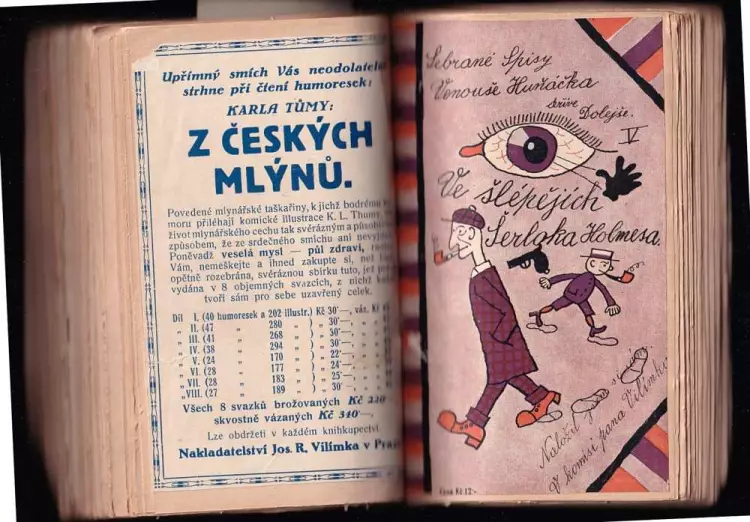 Upřímný smích Vás neodolatelně
strhne při čtení humoresek:
KARLA TŮMY:
Z ČESKÝCH
MLÝNŮ.
Povedené mlynářské taškařiny, k jichž bodrému
moru přiléhají komické illustrace K. L. Thumy,
život mlynářského cechu tak svérázným a působi
způsobem, že ze srdečného smíchu ani nevy
Poněvadž veselá mysl — půl zdraví,
Vám, nemeškejte a ihned zakupte si, než
opětně rozebrána, svéráznou sbírku tuto, jež
vydána v 8 objemných svazcích, z nichž
tvoří sám pro sebe uzavřený celek.
Díl I. (40 humoresek a 202 illustr.) Kč 30·—, váz. Kč
„ II. (47 „ 280 „ ) „ 30·—, „ „
„ III. (41 „ 268 „ ) „ 30·—, „ „
„ IV. (38 „ 294 „ ) „ 30·—, „ „
„ V. (24 „ 170 „ ) „ 22·—, „ „
„ VI. (28 „ 177 „ ) „ 24·—, „ „
„ VII. (28 „ 183 „ ) „ 25·—, „ „
„ VIII. (27 „ 189 „ ) „ 30·—, „ „
Všech 8 svazků brožovaných Kč 220
skvostně vázaných Kč 340·—,
Lze obdržeti v každém knihkupectví
Nakladatelství Jos. R. Vilímka v Praze
Sebrané Spisy
Venouše Huňáčka
Dolejše.
V
Ve šlépějích
Šerloka Holmesa.
Naložil
V komisi pana Vilímka
Cena Kč 12·-